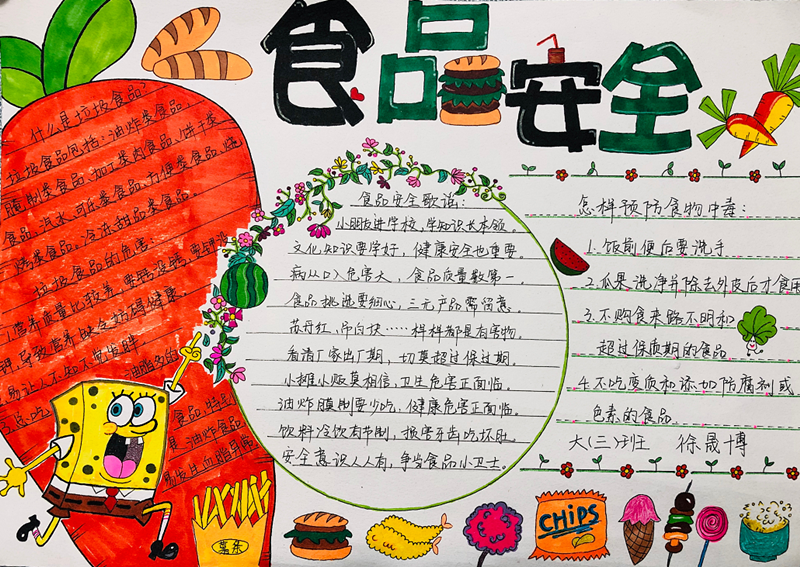 食品安全
什么是垃圾食品?
垃圾食品包括:油炸类食品、
腌制类食品、加工类肉食品、饼干类
食品、汽水、可乐类食品、方便类食品、烧
烤类食品、冷冻甜品类食品。
垃圾食品的危害
营养质量比较差,要钙没钙,要铁没
导致营养缺乏妨碍健康。
易让人不知不觉发胖
油脂多的
食品,特别
是油炸食品
易发生血脂异常
薯条
食品安全歌谣:
小朋友进学校,学知识长本领。
文化知识要学好,健康安全也重要。
病从口入危害大,食品质量数第一。
食品挑选要细心,三无产品需留意。
苏丹红,吊白块……样样都是有害物。
看清厂家出厂期,切莫超过保过期。
小摊小贩莫相信,卫生危害正面临。
油炸腌制要少吃,健康危害正面临。
饮料冷饮有节制,损害牙齿吃坏肚。
安全意识人人有,争当食品小卫士。
怎样预防食物中毒:
1.饭前便后要洗手
2.瓜果洗净并除去外皮后才食用
3.不购食来路不明和
超过保质期的食品
4.不吃变质和添加防腐剂或
色素的食品
大(三)班 徐晟博
CHiPS